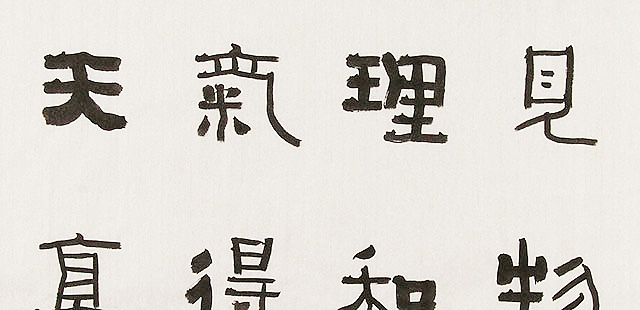 見物
理和
氣得
天真